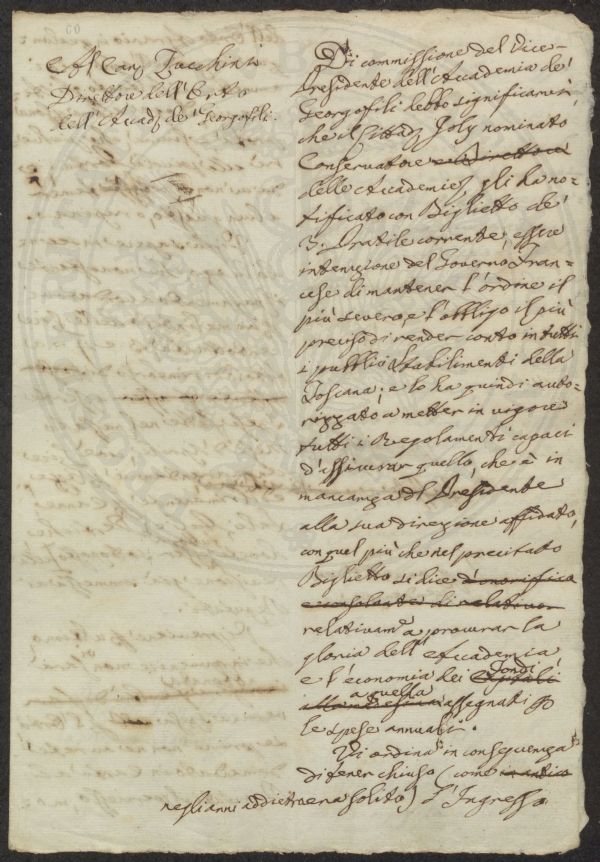 60
Al Can.º Zucchini
Direttore dell'Orto
dell'Accad.ª de' Georgofili.
Di commissione del Vice-
Presidente dell'Accademia de'
Georgofili debbo significarvi
che il Cittad.º Joly nominato
Conservatore e Direttore
delle Accademie, gli ha no-
tificato con Biglietto de'
3. Pratile corrente, essere
intenzione del Governo Fran-
cese di mantener l'ordine il
più severo, e l'obbligo il più
preciso di render conto in tutti
i pubblici Stabilimenti della
Toscana; e lo ha quindi auto-
rizzato a metter in vigore
tutti i Regolamenti capaci
d'assicurar quello, che è in
mancanza del Presidente
alla sua direzione affidato,
con quel più che nel precitato
Biglietto si dice d'onorifico
e consolante di relativam
relativam.e a procurar la
gloria dell'Accademia
e l'economia dei Capitali Fondi
a quella assegnati p
le spese annuali.
Vi ordina in conseguenza
di tener chiuso (come in antico
negli anni addietro era solito) l'Ingresso